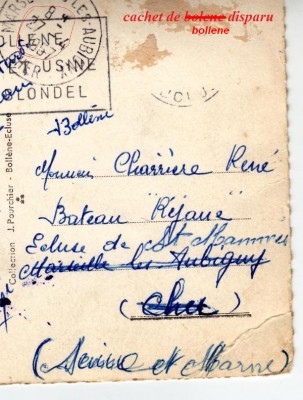 cachet de bolene disparu
bollene
MARSEILLES-LES-AUBIGNY
BOLLENE
USINE
BLONDEL
Bollène
Monsieur Charrière René
Bateau "Réjane"
Ecluse de St Mammès
Marseille les Aubigny
(Cher)
(Seine et Marne)
Collection J. Pourchier - Bollène-Ecluse